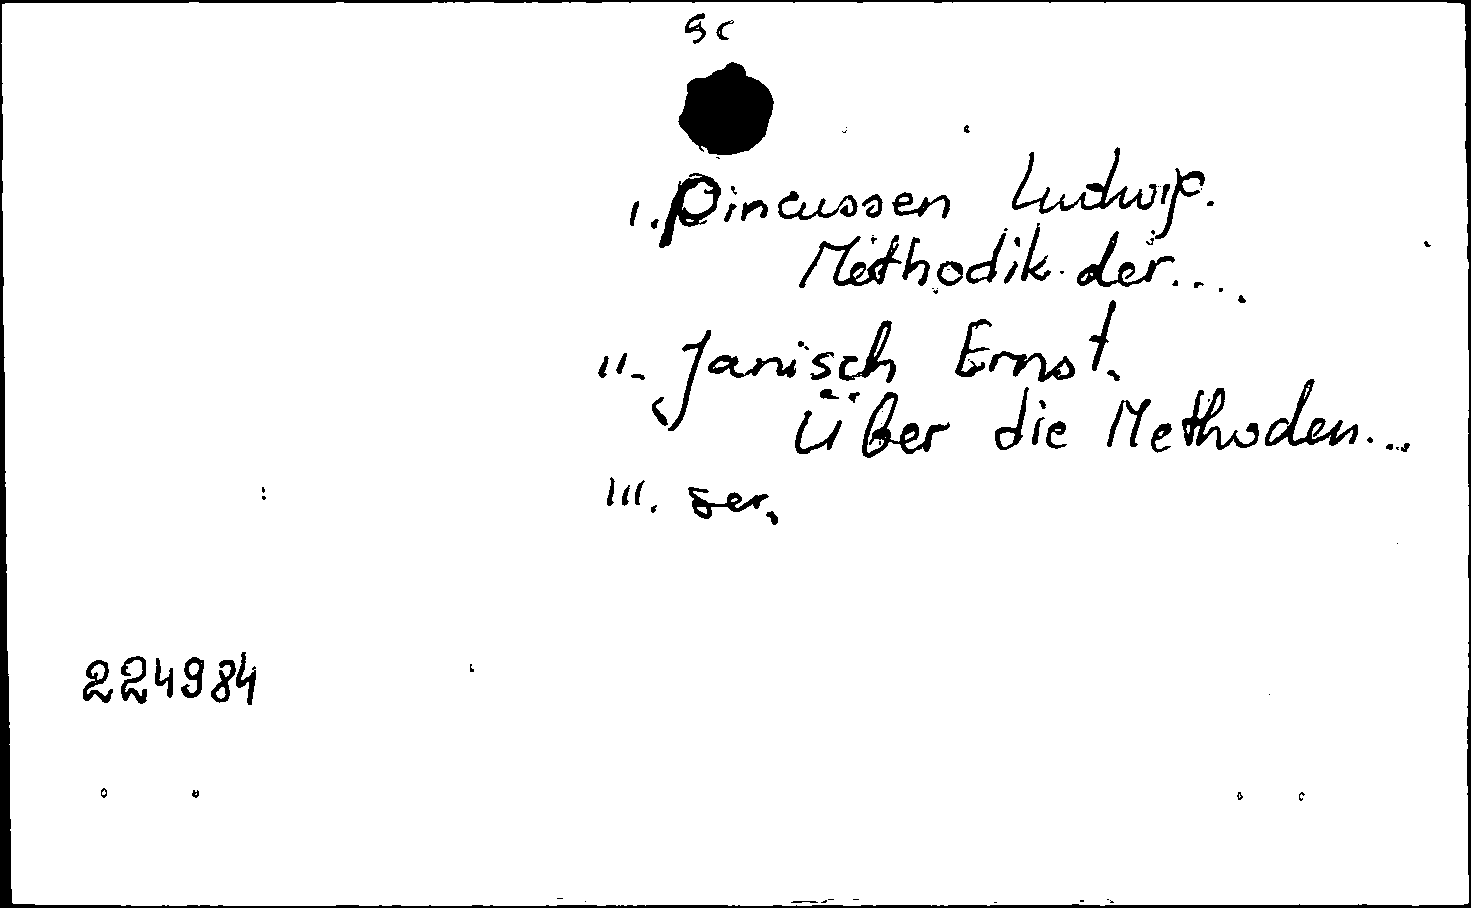 I. Pincussen Ludwig.
Methodik der....
II. Janisch Ernst.
Über die Methoden...
III. ser.
224984